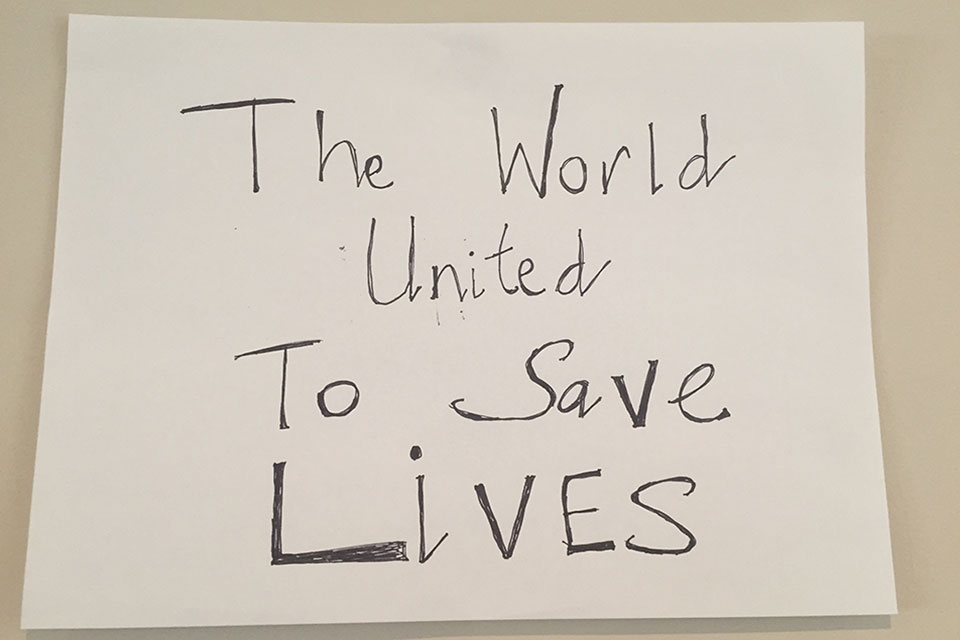 The World
United
To Save
LiVES